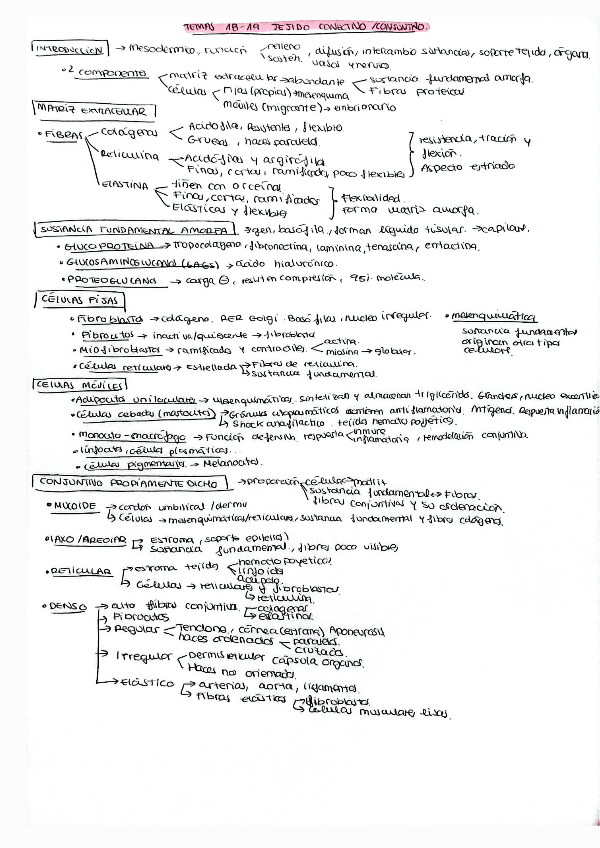 TEMAS 18-19 TEJIDO CONECTIVO/CONJUNTIVO.
INTRODUCCIÓN → Mesodermico, función < relleno, difusión, intercambio sustancias, soporte tejido, órgano.
sosten. vasos y nervios
• 2 componentes < matriz extracelular → abundante < sustancia fundamental amorfa.
Fibras proteicas
células < Fijas (propias) → mesenquima
móviles (migrante) → embrionario
MATRIZ EXTRACELULAR
• FIBRAS < Colágenas < Acidofila, Resistente, flexible.
Gruesas, haces paralelos.
Reticulina < Acidófilas y argirófila
Finas, cortas, ramificadas, poco flexibles
resistencia, tracción y
flexión.
Aspecto estriado
ELASTINA < tiñen con orceina.
Finas, cortas, ramificadas
Elásticas y flexibles
Flexibilidad.
forma matriz amorfa.
SUSTANCIA FUNDAMENTAL AMORFA → gen, basófila, forman líquido tisular. → capilares.
• GLUCOPROTEINA → Tropocolageno, fibronectina, laminina, tenascina, entactina.
• GLUCOSAMINOGLUCANOS (GAGS) → ácido hialurónico.
• PROTEOGLUCANO → carga ⊖, resisten compresión, molecula.
CÉLULAS FIJAS
• Fibroblasto → colágeno. RER Golgi. Basófilas, nucleo irregular.
• Fibrocitos → inactiva/quiescente → fibroblasto
• Miofibroblastos → ramificada y contractiles < actina.
miosina → globular.
• Células reticulares → estrellada → Fibras de reticulina.
→ sustancia fundamental.
• mesenquimática
sustancia fundamental
originan otros tipos
celulares.
CÉLULAS MÓVILES
• Adipocito unilocular → mesenquimáticas. sintetizan y almacenan triglicérido. Grandes, nucleo
• Células cebadas (mastocitos) → Gránulos citoplasmáticos contienen antiflamatorio. Antígeno. Respuesta
→ Shock anafilactico. tejido hematopoyético.
• monocito-macrófago → Función defensiva. respuesta < inmune
inflamatoria, remodelación conjuntivo.
• linfocitos, células plasmáticas...
• Células pigmentarias → Melanocitos.
CONJUNTIVO PROPIAMENTE DICHO → proporción < células → matriz
sustancia fundamental → Fibras.
fibras conjuntivas y su ordenación.
• MUXOIDE → cordon umbilical /dermis
→ Células → mesenquimáticas/reticulares, sustancia fundamental y fibras colágenas.
• LAXO/AREOLAR → Estroma, soporte epitelial
→ sustancia fundamental, fibras poco visibles
• RETICULAR → estroma tejido < hematopoyeticos
linfoide
→ Células → reticulares y fibroblastos
→ reticulina.
• DENSO → alto fibra conjuntiva. → colageno
→ elastina.
→ Fibrocitos
→ Regular < Tendones, córnea (estroma) Aponeurosis
haces ordenados < paralelos.
cruzados.
→ Irregular < Dermis reticular cápsula organos.
Haces no orienados.
→ ELástico → arterias, aorta, ligamentos.
→ Fibras elásticas → fibroblasto
→ células musculares lisas.